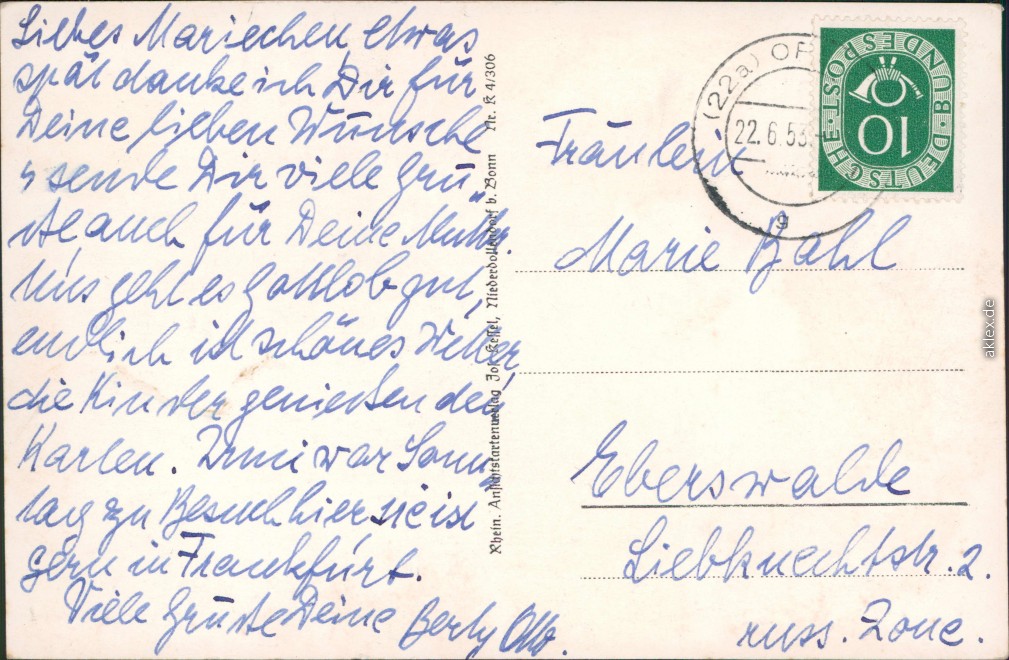 Liebes Mariechen, etwas
spät danke ich Dir für
Deine lieben Wünsche
u sende Dir viele Grü-
ße auch für Deine Mutter.
Uns geht es Gottlob gut,
endlich ist schönes Wetter
die Kinder genießen den
Garten. war Sonn-
tag zu Besuch hier sie ist
gern in Frankfurt.
Viele Grüße Deine Berty Otto.
Rhein. Ansichtskartenverlag Jos. Kessel, Niederdollendorf b. Bonn Nr. K 4/306
(22a) OP
22.6.53
g
DEUTSCHE BUNDESPOST
10
Fräulein
Marie Bahl
Eberswalde
Liebknechtstr. 2.
russ. Zone.
aklex.de